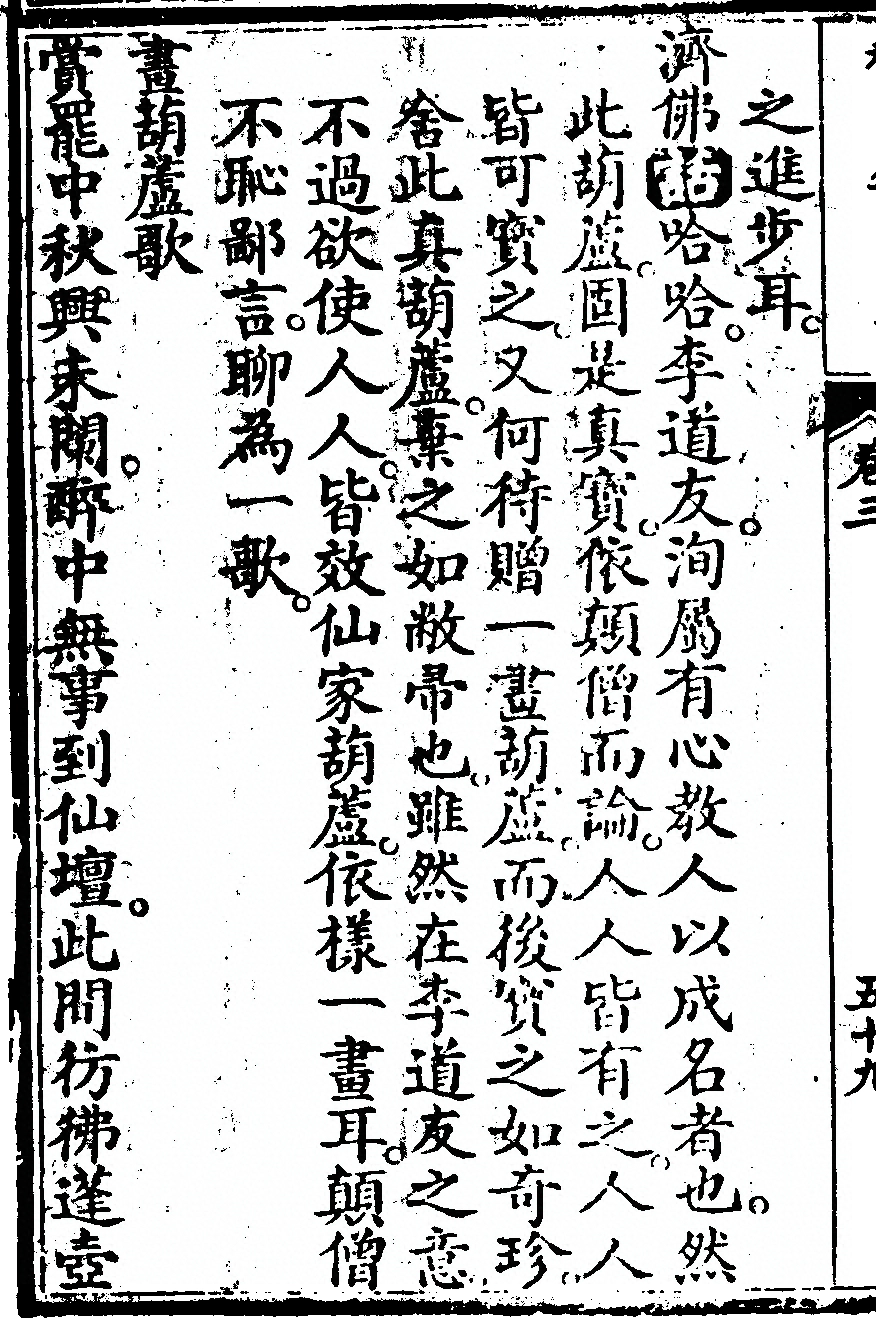 卷三
五十九
之進步耳。
濟佛詰哈哈。李道友。洵屬有心教人以成名者也。然
此葫蘆。固是真寶。依顛僧而論。人人皆有之。人人
皆可寶之。又何待贈一畫葫蘆。而後寶之如奇珍。
舍此真葫蘆。棄之如敝帚也。雖然在李道友之意
不過欲使人人。皆效仙家葫蘆。依樣一畫耳。顛僧
不恥鄙言。聊為一歌。
畫葫蘆歌
賞罷中秋興未闌。醉中無事到仙壇。此間彷彿蓬壺